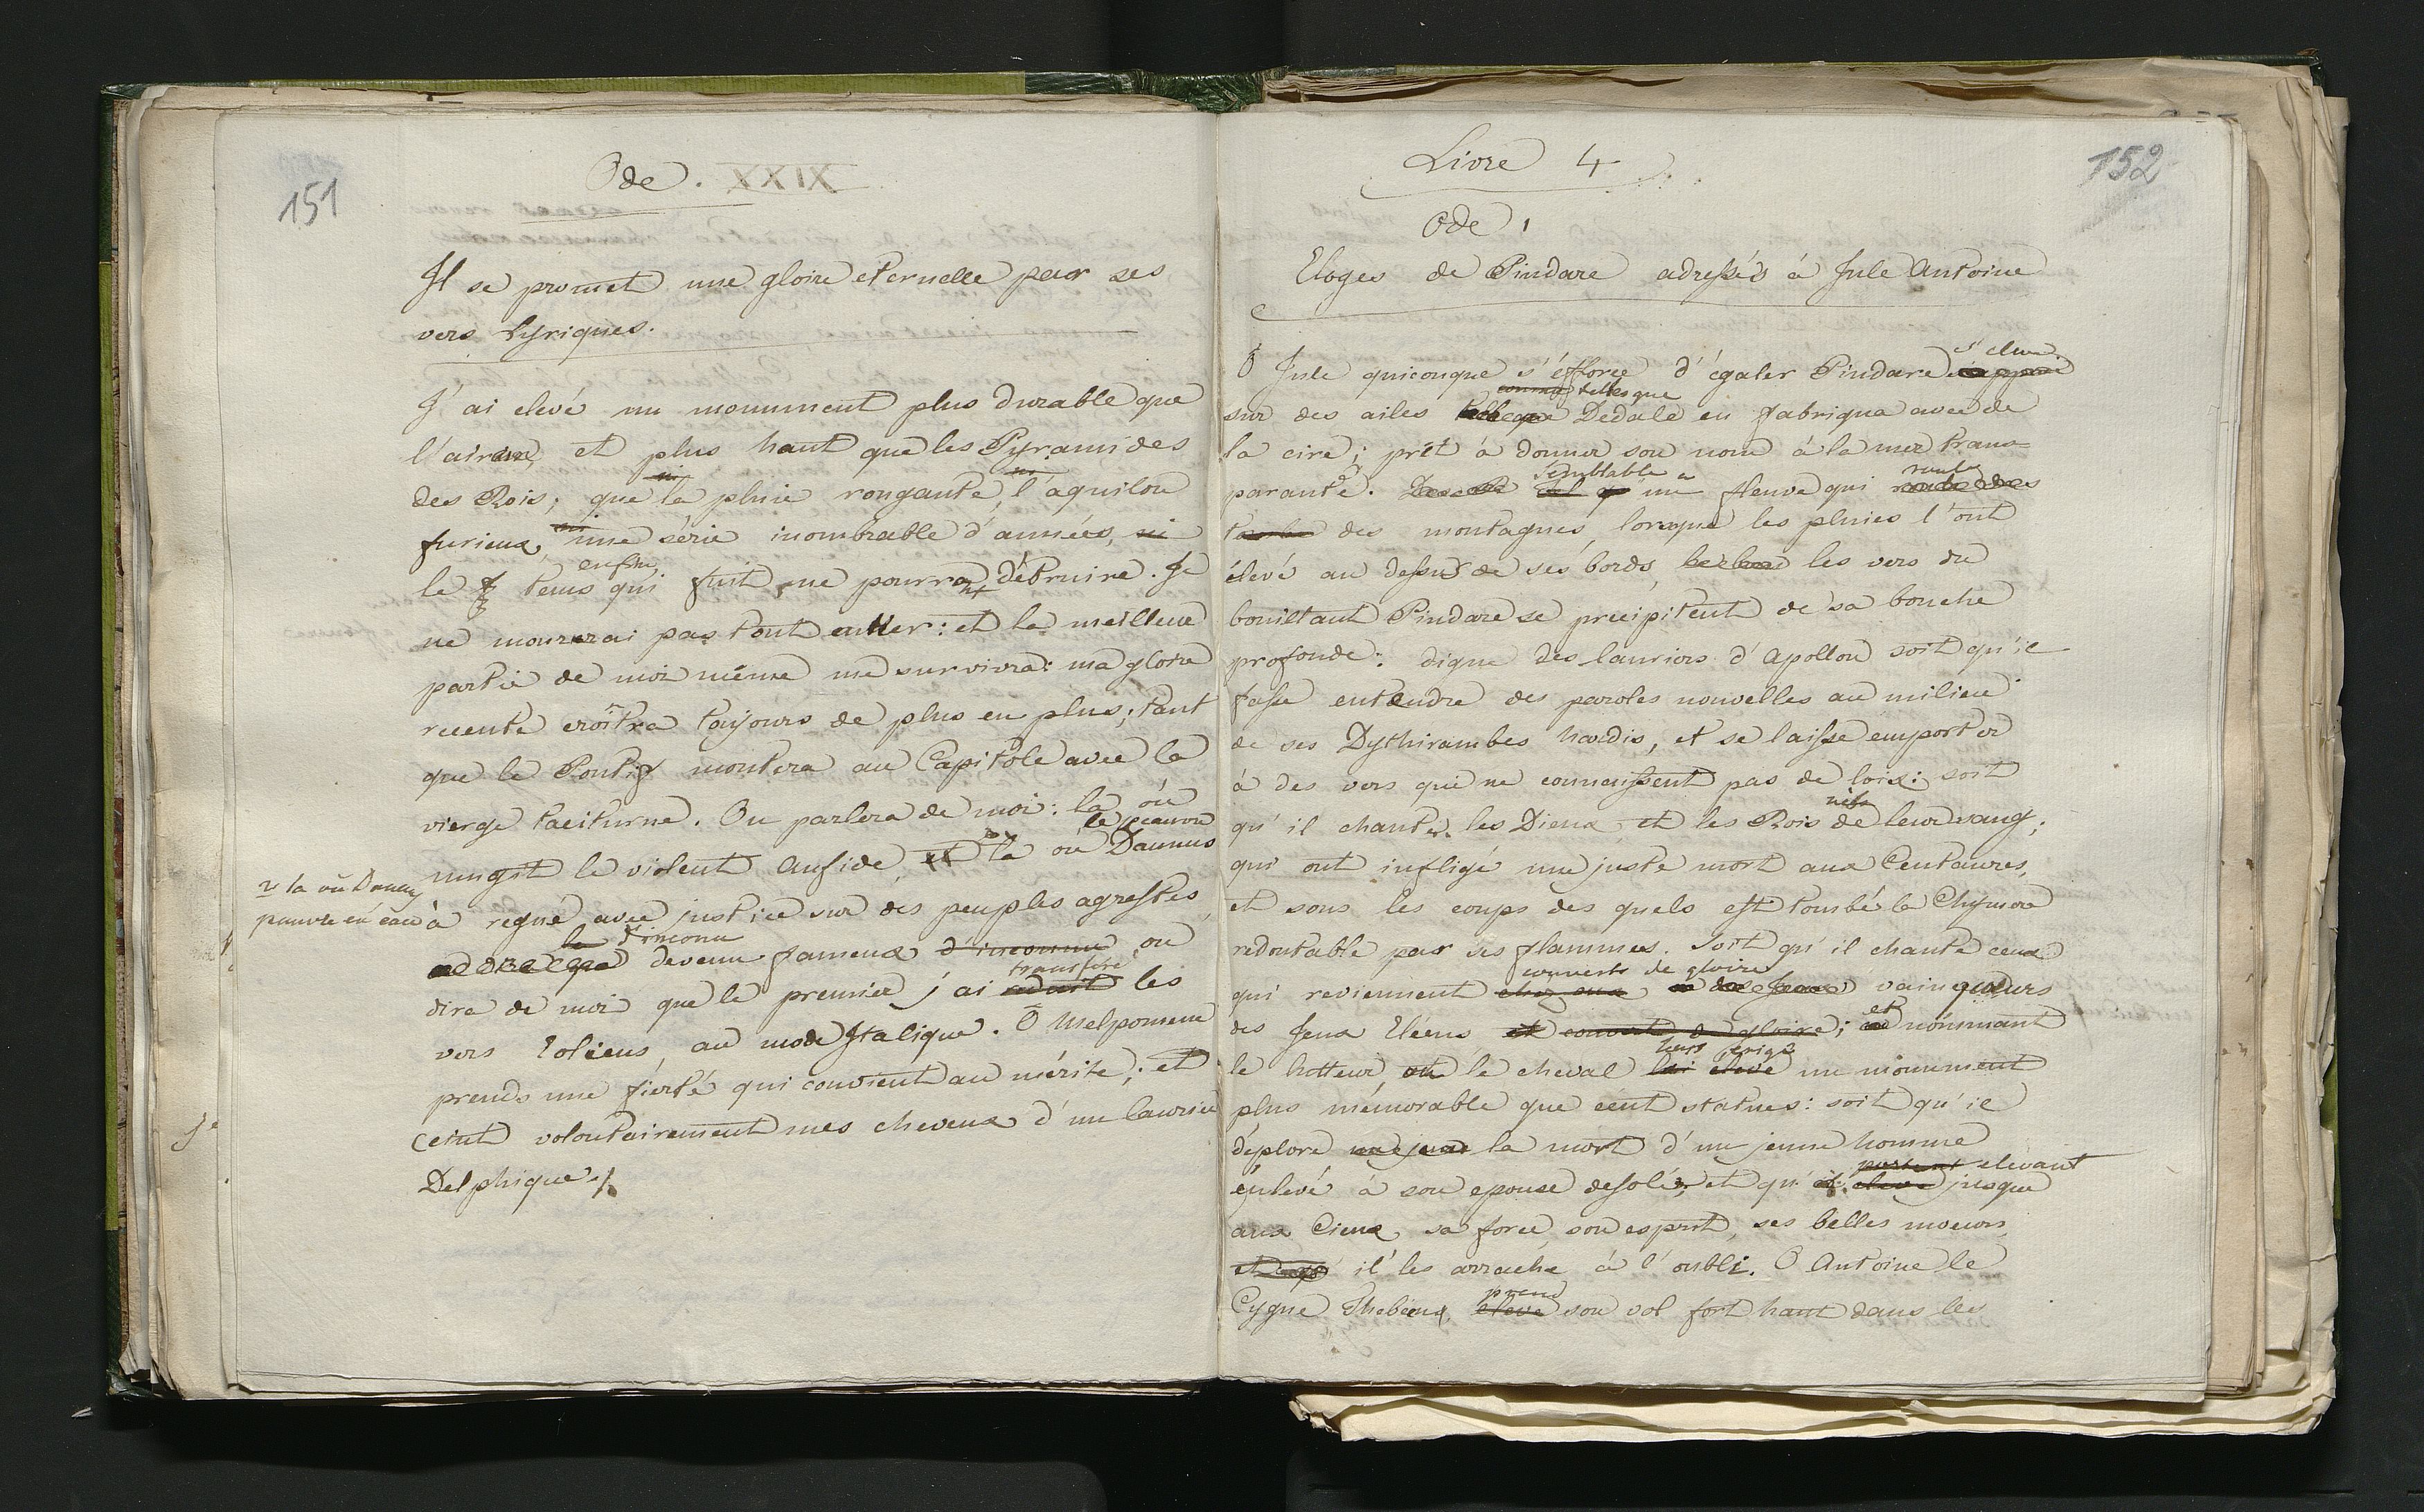 151
Ode. XXIX
Il se promet une gloire eternelle par ses
vers Lyriques.
J'ai elevé un monument plus durable que
l'airain, et plus haut que les Pyramides
des Rois; que ni la pluie rongante, ni l'aquilon
furieux, ni une série inombrable d'années, ni
le tems enfin qui fuit, ne pourront détruire. Je
ne mourrai pas tout entier: et la meilleure
partie de moi même me survivra: ma gloire
recente croîtra toujours de plus en plus; tant
que le Pontif montera au Capitole avec la
vierge taciturne. On parlera de moi: la où
mugit le violent Aufide, et la où le pauvre Daunus
la où Daunus
pauvre en eau
à regné avec justice sur des peuples agrestes
devenu fameux d'inconu d'inconnu, on
dira de moi que le premier j'ai transferé les
vers Eoliens, au mode Italique. O Melpomene
prends une fierté qui convient au mérite; et
ceint volontairement mes cheveux d'un laurier
Delphique./.
152
Livre 4
Ode 1
Eloges de Pindare adressés à Jule Antoine
O Jule quiconque s'éfforce d'égaler Pindare s'eleve
sur des ailes comme telles que Dedale en fabriqua avec de
la cire; prêt à donner son nom à la mer trans-
parante. semblable a un fleuve qui roule
tombe des montagnes, lorsque les pluies l'ont
élevé au dessus de ses bords, les vers du
bouillant Pindare se precipitent de sa bouche
profonde: digne des lauriers d'Apollon soit qu'il
fasse entendre des paroles nouvelles au milieu
de ses Dythirambes hardis, et se laisse emporter
à des vers qui ne connaissent pas de loix: soit
qu'il chante les Dieux et les Rois nés de leur sang;
qui ont infligé une juste mort aux Centaures,
et sous les coups des quels est tombé la Chymere
redoutable par ses flammes. Soit qu'il chante ceux
qui reviennent chez eux couverts de gloire vainqueurs
des Jeux Eléens et couvert de gloire; et nommant
le lutteur, ou le cheval lui eleve leurs erige un monument
plus mémorable que cent statues: soit qu'il
déplore une jeune la mort d'un jeune homme
enlevé à son epouse desolée, et qu'il eleve portant elevant jusque
aux Cieux sa force, son esprit, ses belles moeurs
il les arrache à l'oubli. O Antoine le
Cygne Thebeux, eleve prend son vol fort haut dans les